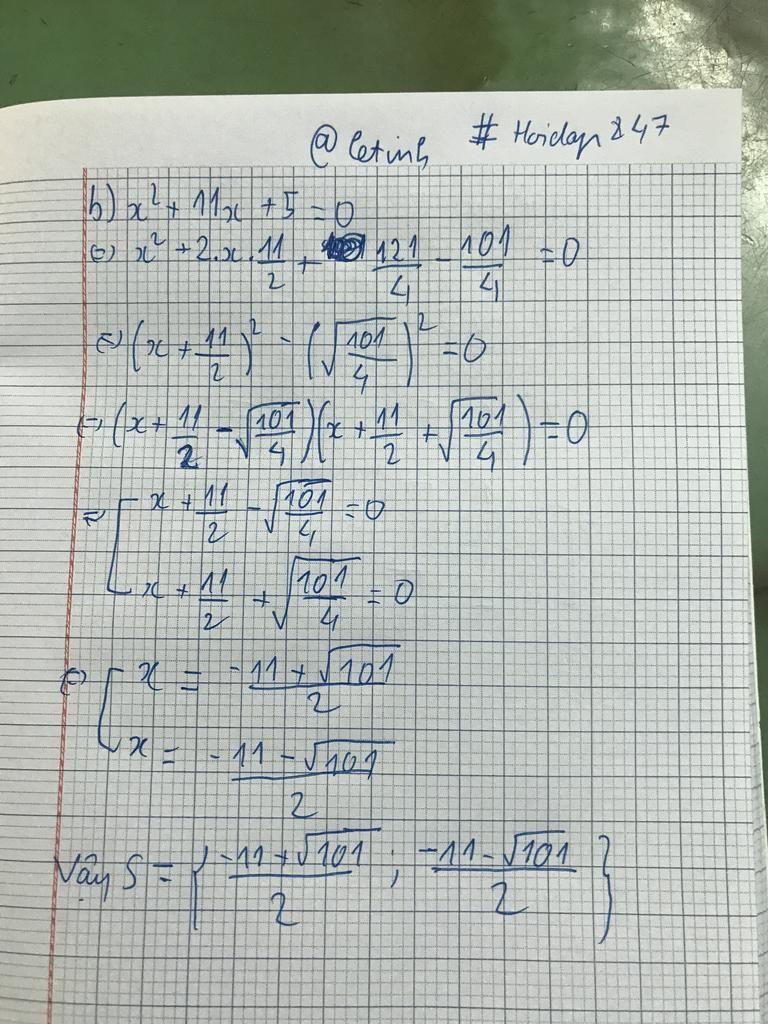 @ letinh # Hoidap247
b) x² + 11x + 5 = 0
⇔ x² + 2.x.11/2 + 121/4 - 101/4 = 0
⇔ (x + 11/2)² - (√(101/4))² = 0
⇔ (x + 11/2 - √(101/4))(x + 11/2 + √(101/4)) = 0
⇔ [ x + 11/2 - √(101/4) = 0
x + 11/2 + √(101/4) = 0
⇔ [ x = (-11 + √101)/2
x = (-11 - √101)/2
Vậy S = { (-11 + √101)/2 ; (-11 - √101)/2 }